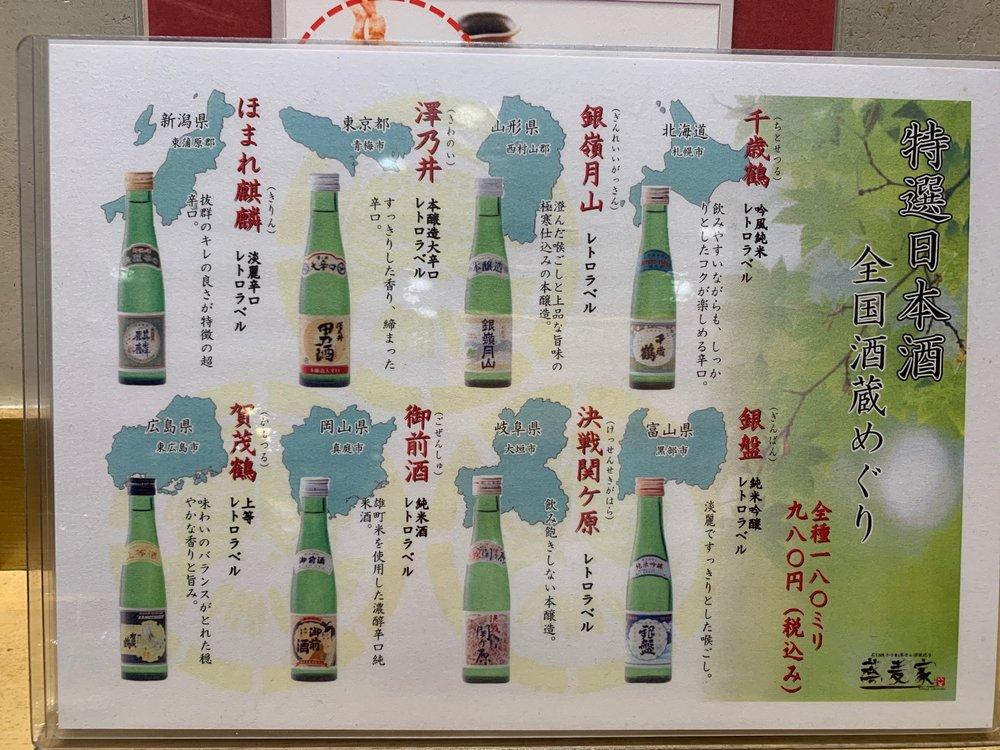 特選日本酒
全国酒蔵めぐり
全種一八〇ミリ
九八〇円（税込み）
蕎麦家
千歳鶴
（ちとせつる）
吟風純米
レトロラベル
北海道
札幌市
飲みやすいながらも、しっか
りとしたコクが楽しめる辛口。
千歳
鶴
銀嶺月山
（ぎんれいがっさん）
レトロラベル
山形県
西村山郡
澄んだ喉ごしと上品な旨味の
極寒仕込みの本醸造。
本醸造
銀嶺月山
澤乃井
（さわのい）
本醸造大辛口
レトロラベル
東京都
青梅市
すっきりした香り、締まった
辛口。
大辛口
澤乃井
男酒
本醸造大辛口
ほまれ麒麟
（きりん）
淡麗辛口
レトロラベル
新潟県
東蒲原郡
抜群のキレの良さが特徴の超
辛口。
銀盤
（ぎんばん）
純米吟醸
レトロラベル
富山県
黒部市
淡麗ですっきりとした喉ごし。
純米吟醸
銀盤
決戦関ケ原
（けっせんせきがはら）
レトロラベル
岐阜県
大垣市
飲み飽きしない本醸造。
決戦
関ケ原
御前酒
（ごぜんしゅ）
純米酒
レトロラベル
岡山県
真庭市
雄町米を使用した濃醇辛口純
米酒。
御前酒
御前
酒
賀茂鶴
上等
レトロラベル
広島県
東広島市
味わいのバランスがとれた穏
やかな香りと旨み。
上等酒
賀茂鶴